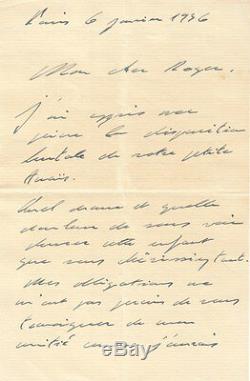 Paris 6 janvier 1936
Mon cher Roger,
j'ai appris avec
peine la disparition
brutale de votre petite
Anaïs.
Quel drame et quelle
douleur de vous voir
pleurer cette enfant
que vous chérissiez tant.
Mes obligations ne
m'ont pas permis de vous
témoigner de mon
amitié comme j'aurais